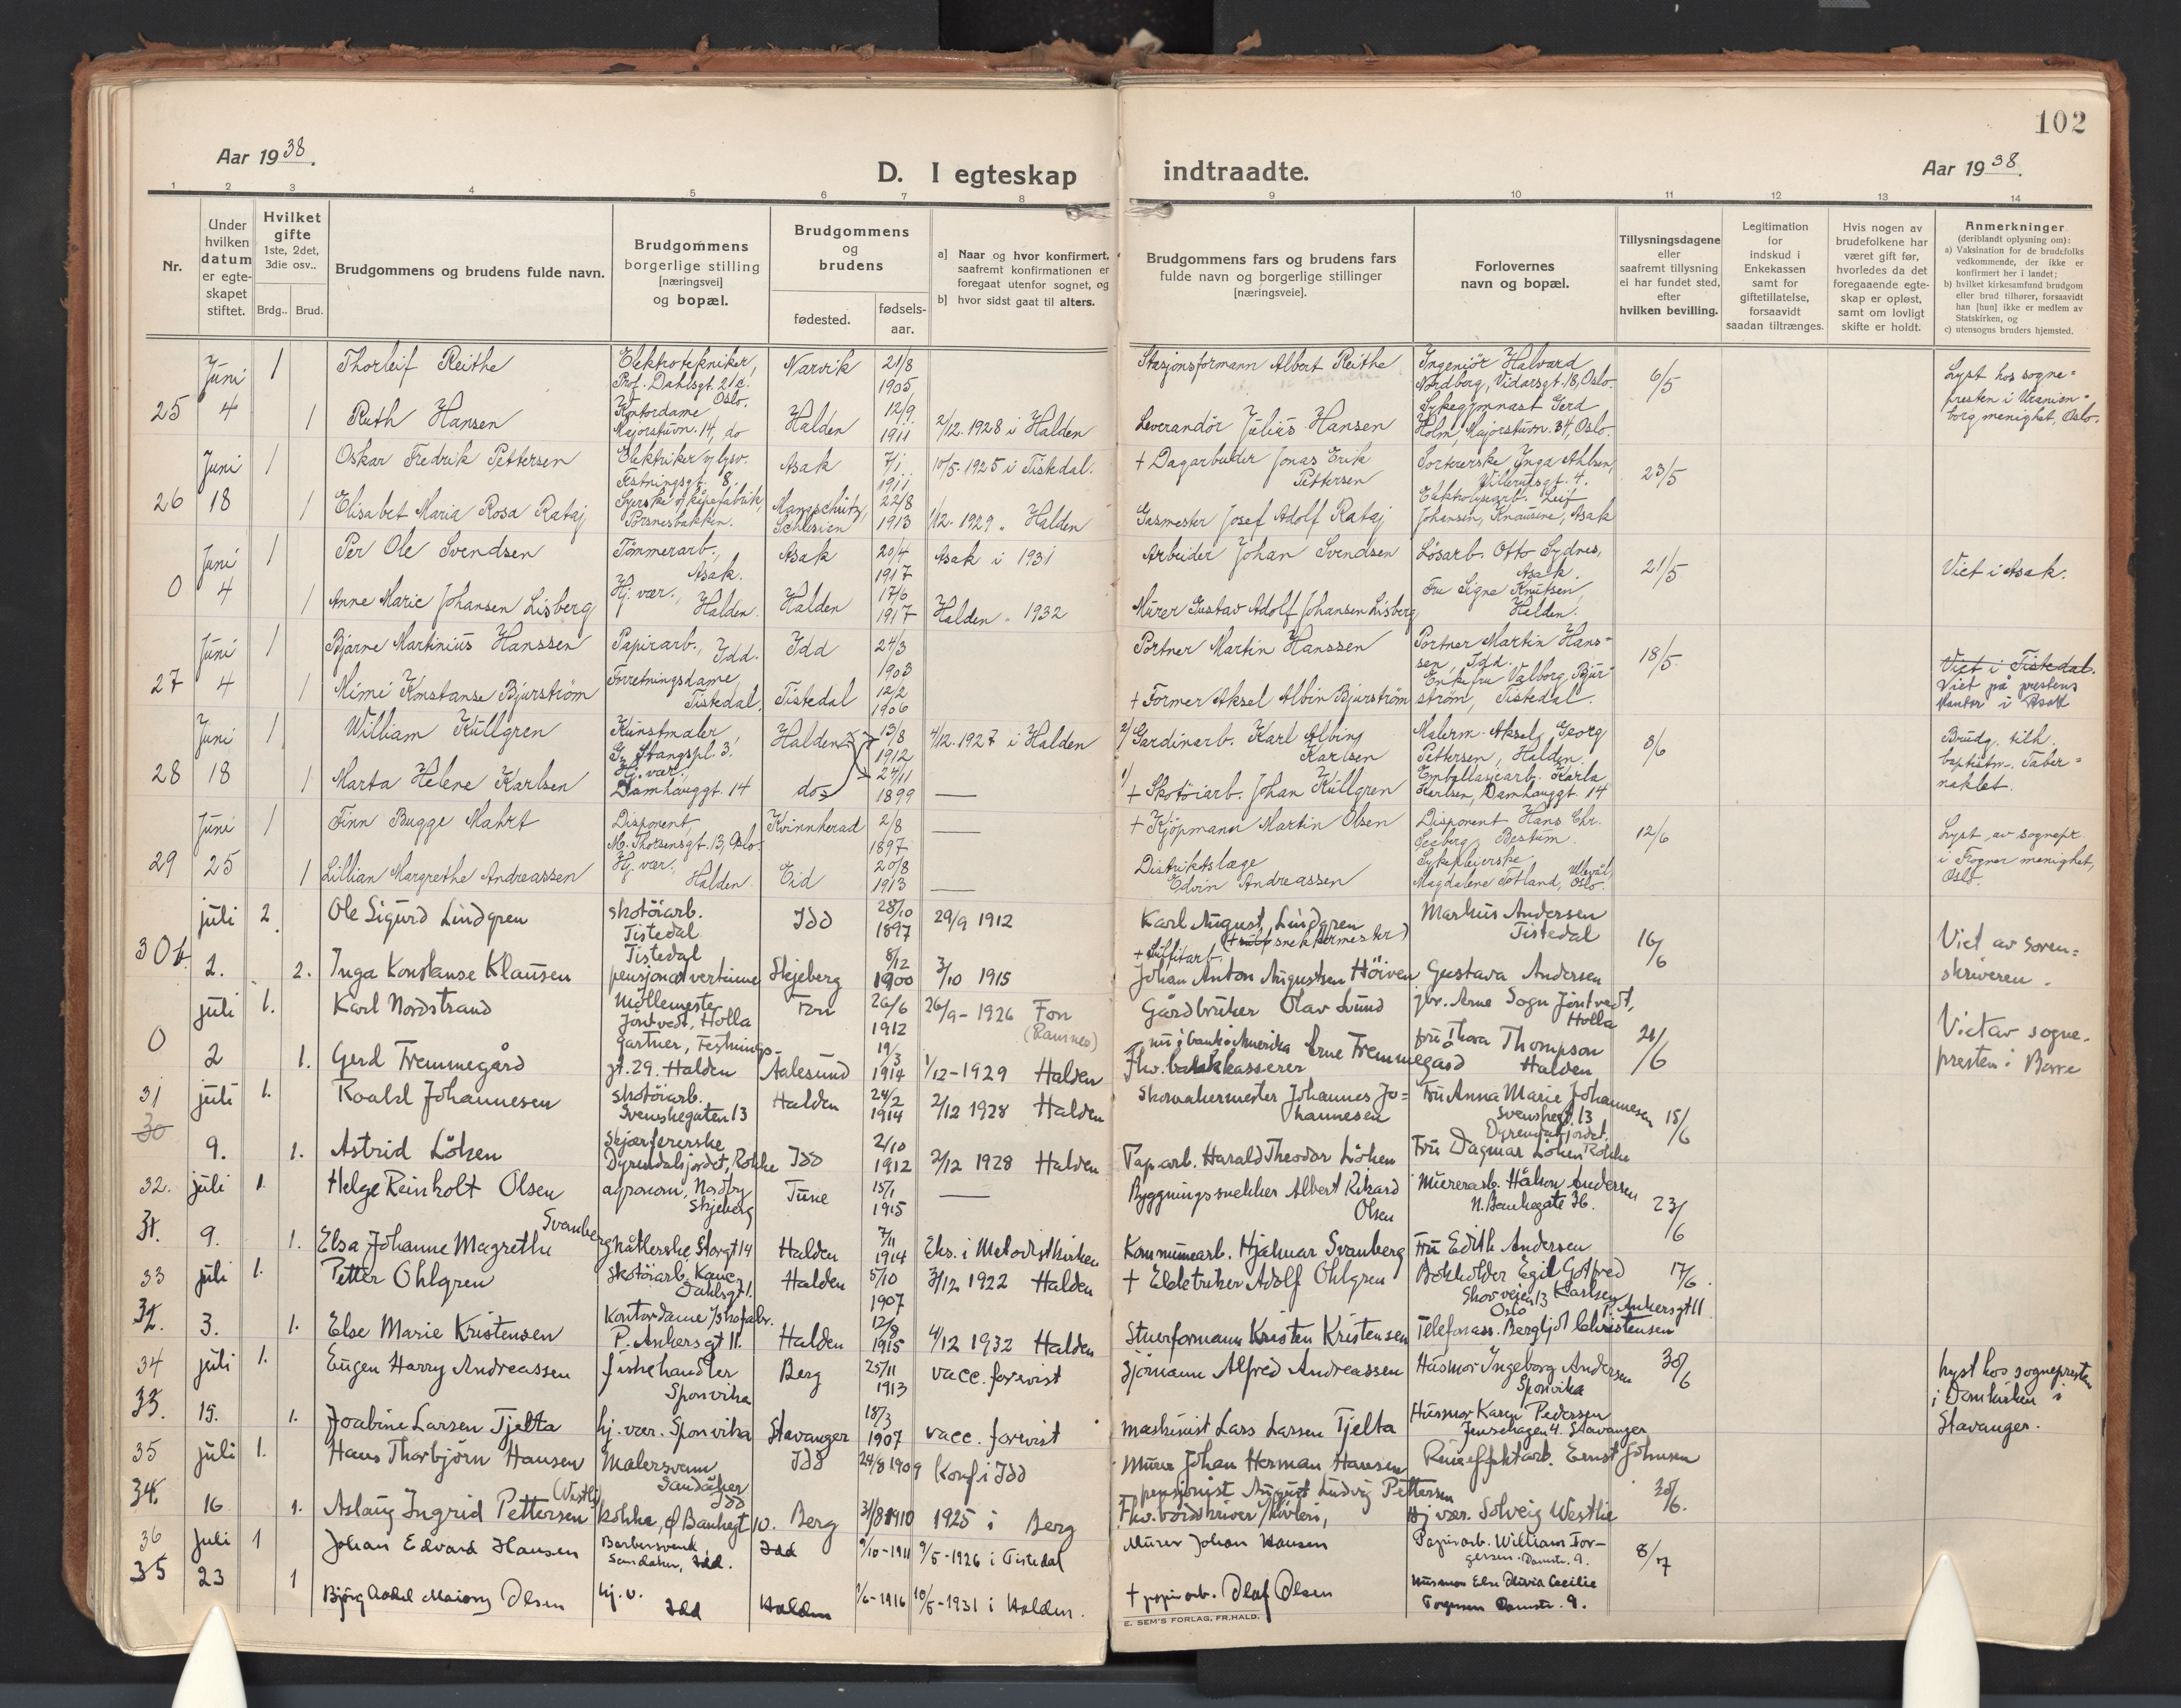 102
Aar 1938.
D. I egteskap indtraadte.
Aar 1938.
1 2 3 4 5 6 7 8 9 10 11 12 13 14
Nr.
Under hvilken datum er egteskapet stiftet.
Hvilket gifte 1ste, 2det, 3die osv..
Brdg.. Brud.
Brudgommens og brudens fulde navn.
Brudgommens borgerlige stilling [næringsvei] og bopæl.
Brudgommens og brudens
fødested.
fødsels-aar.
a] Naar og hvor konfirmert, saafremt konfirmationen er foregaat utenfor sognet, og
b] hvor sidst gaat til alters.
Brudgommens fars og brudens fars fulde navn og borgerlige stillinger [næringsveie].
Forlovernes navn og bopæl.
Tillysningsdagene eller saafremt tillysning ei har fundet sted, efter hvilken bevilling.
Legitimation for indskud i Enkekassen samt for giftetillatelse, forsaavidt saadan tiltrænges.
Hvis nogen av brudefolkene har været gift før, hvorledes da det foregaaende egteskap er opløst, samt om lovligt skifte er holdt.
Anmerkninger (deriblandt oplysning om):
a) Vaksination for de brudefolks vedkommende, der ikke er konfirmert her i landet;
b) hvilket kirkesamfund brudgom eller brud tilhører, forsaavidt han [hun] ikke er medlem av Statskirken, og
c) utensogns bruders hjemsted.
25 Juni 4 1 Thorleif Reithe Elektrotekniker, Prof. Dahlsgt. 21c. Oslo. Narvik 21/8 1905 Stasjonsformann Albert Reithe Ingeniör Halvard Nordborg, Vidarsgt. 18, Oslo. 6/5 Lyst hos sogne=presten i Uranienborg menighet, Oslo.
1 Ruth Hansen Kontordame Majorstuvn. 14, do Halden 12/9 1911 2/12. 1928 i Halden Leverandör Julius Hansen Sykegymnast Gerd Holm, Majorstuvn. 34, Oslo.
26 Juni 18 1 Oskar Fredrik Pettersen Elektriker v/ lysv. Festningsgt. 8. Asak 7/1 1911 10/5. 1925 i Tistedal. + Dagarbeider Jonas Erik Pettersen Sorterske Inga Ahlsen, 4. 23/5
1 Elisabet Maria Rosa Rataj Syerske v/ kåpefabrik, Porsnesbakken. Schlesien 22/8 1913 1/12. 1929 " Halden Gasmester Josef Adolf Rataj Leif Johansen, Knausene, Asak
0 Juni 4 1 Per Ole Svendsen Tömmerarb., Asak. Asak 20/4 1917 Asak i 1931 Arbeider Johan Svendsen Lösarb. Otto Sydnes, Asak. 21/5 Viet i Asak.
1 Anne Marie Johansen Lisberg Hj. vær., Halden. Halden 17/6 1917 Halden " 1932 Murer Gustav Adolf Johansen Lisberg Fru Signe Knutsen, Halden.
27 Juni 4 1 Bjarne Martinius Hanssen Papirarb., Idd. Idd 24/3 1903 Portner Martin Hanssen Portner Martin Hans=sen, Idd. 18/5 Viet i Tistedal. Viet på prestens kontor i Asak
1 Mimi Konstanse Bjurström Forretningsdame, Tistedal. Tistedal 12/2 1906 + Former Aksel Albin Bjurström Enkefru Valborg Bjurström, Tistedal.
28 Juni 18 1 William Kullgren Kunstmaler G. Stangspl. 3. Halden 13/8 1912 4/12. 1927 i Halden 2/ Gardinarb. Karl Albing Karlsen Malerm. Aksel Georg Pettersen, Halden. 8/6 Brudg. tilh. baptistm. Taber=naklet.
1 Marta Helene Karlsen Hj. vær., Damhauggt. 14 do 24/11 1899 — 1/ + Skotöiarb. Johan Kullgren Emballasjearb. Karla Karlsen, Damhauggt. 14
29 Juni 25 1 Finn Bugge Mahrt Disponent, M. Thorsensgt. 13, Oslo. Kvinnherad 2/8 1897 — + Kjöpmann Martin Olsen Disponent Hans Chr. Seeberg, Bestum. 12/6 Lyst av sognepr. i Frogner menighet, Oslo.
1 Lillian Margrethe Andreassen Hj. vær., Halden Eid 20/8 1913 — Distriktslæge Edvin Andreassen Sykepleierske Magdalene Totland, Ullevål, Oslo.
30 juli 2. 2. Ole Sigurd Lindgren skotöiarb. Tistedal Idd 28/10 1897 29/9 1912 Karl August Lindgren Markus Andersen Tistedal 16/6 Viet av soren=skriveren.
2. Inga Konstanse Klausen Tistedal pensjonatvertinne Skjeberg 8/12 1900 3/10 1915 Johan Anton Augustsen Höiven Gustava Andersen
0 juli 2 1. Karl Nordstrand Möllemester Jöntvedt, Holla Fon 26/6 1912 26/9 - 1926 Fon (Ramnes) Gårdbruker Olav Lund gbr. Arne Sogn Jöntvedt, Holla 21/6 Viet av sogne-presten i Borre
1. Gerd Fremmegård gartner, Festnings-gt. 29. Halden Aalesund 19/3 1914 1/12 - 1929 Halden Fhv. bankkasserer nu i Amerika Arne Fremmegård fru Thora Thompson Halden
31 30 juli 9. 1. Roald Johannesen skotöiarb. Svenskegaten 13 Halden 24/2 1914 2/12 1928 Halden Skomakermester Johannes Jo=hannesen Fru Anna Marie Johannesen Svenskegt. 13 15/6
1. Astrid Löken skjærfererske Dyrendalsjordet, Rokke Idd 2/10 1912 2/12 1928 Halden Paparb. Harald Theodor Löken Fru Dagmar Löken Dyrendalsjordet. Rokke
32. 31. juli 9. 1 Helge Reinholt Olsen agronom, Nordby Skjeberg Tune 15/1 1915 — Byggningssnekker Albert Rikard Olsen Murerarb. Håkon Andersen N. Bankegate 36. 23/6
1. Elsa Johanne Magrethe Svanberg nåtlerske Storgt 14 Halden 7/11 1914 Eks. i Metodistkirken Kommunearb. Hjalmar Svanberg Fru Edith Andersen
33 32. juli 3. 1. Petter Ohlgren Skotöiarb. Kanc. Dahlsgt 1. Halden 5/10 1907 3/12 1922 Halden + Eldetrker Adolf Ohlgren Bokholder Egil Gotfred Karlsen Skovveien 13 Oslo 17/6.
1. Else Marie Kristensen Kontordame i/skofabr. P. Ankersgt 11. Halden 12/8 1915 4/12 1932 Halden Stuerformann Kristen Kristensen Telefonass. Bergljot Christensen P. Ankersgt 11
34 33. juli 15. 1. Eugen Harry Andreassen fiskehandler Sponvika Berg 25/11 1913 vacc. forevist Sjömann Alfred Andreassen Husmor Ingeborg Andersen Sponvika 30/6 Lyst hos sognepresten i Domkirken i Stavanger.
1. Joabine Larsen Tjelta hj. vær. Sponvika Stavanger 18/3 1907 vacc. forevist maskinist Lars Larsen Tjelta Husmor Karen Pedersen Jenschagen 4. Stavanger
35 34. juli 16 1. Hans Thorbjörn Hansen Malersvenn Sandåker Idd Idd 24/8 1909 Konf i Idd Murer Johan Herman Hansen Ernst Johnsen 30/6.
1. Aslaug Ingrid Pettersen (Westli) kokke, Ø Bankegt 10. Berg 31/8 1910 1925 i Berg pensjonist August Ludvig Pettersen Hj vær. Solveig Westlie
36 35 Juli 23 1 Johan Edvard Hansen Barbersvend, Sandaker, Idd. Idd 9/10 - 1911 9/5 - 1926 i Tistedal Murer Johan Hansen Papirarb. William Tor-gersen. Damstr. 9. 8/7
1 Björg Olsen hj. v. Idd Halden 1/6 - 1916 10/5 - 1931 i Halden. + papirarb. Olaf Olsen Husmor Else Olivia Cecilie Torgersen Damstr. 9.
E. SEM'S FORLAG, FR.HALD.